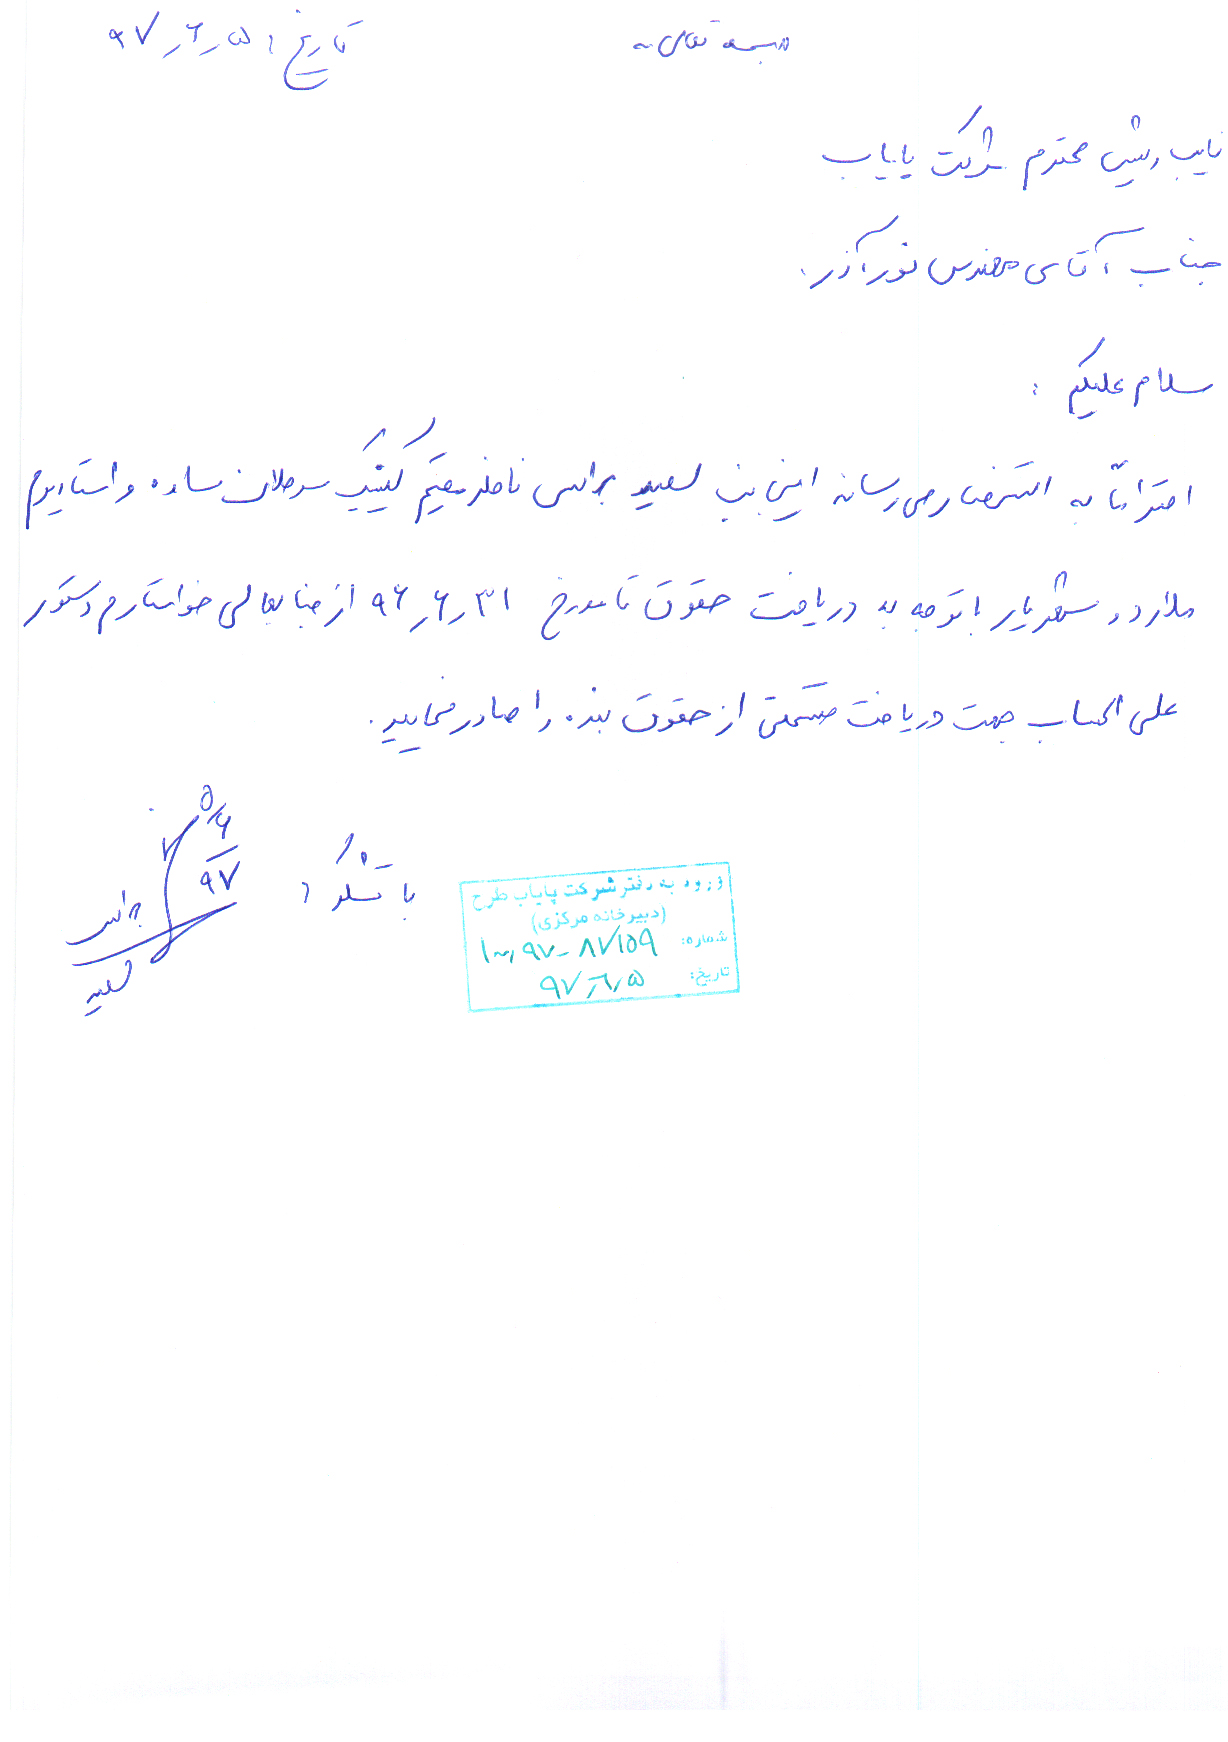 بسمه تعالی
تاریخ: ۹۷/۶/۵
نایب رئیس محترم شرکت پایاب
جناب آقای مهندس نورآذر
سلام علیکم:
احتراماً به استحضار می رساند اینجانب سعید براتی ناظر مقیم سرملارد ساده و استادیوم
ملارد و شهریار با توجه به دریافت حقوق تا مورخ ۹۶/۶/۳۱ از جنابعالی خواستارم دستور
علی الحساب جهت دریافت قسمتی از حقوق بنده را صادر نمایید.
با تشکر:
۵/۶
۹۷
سعید
ورود به دفتر شرکت پایاب طرح
(دبیرخانه مرکزی)
شماره: ۸۷۱۵۹-۹۷
تاریخ: ۹۷/۶/۵